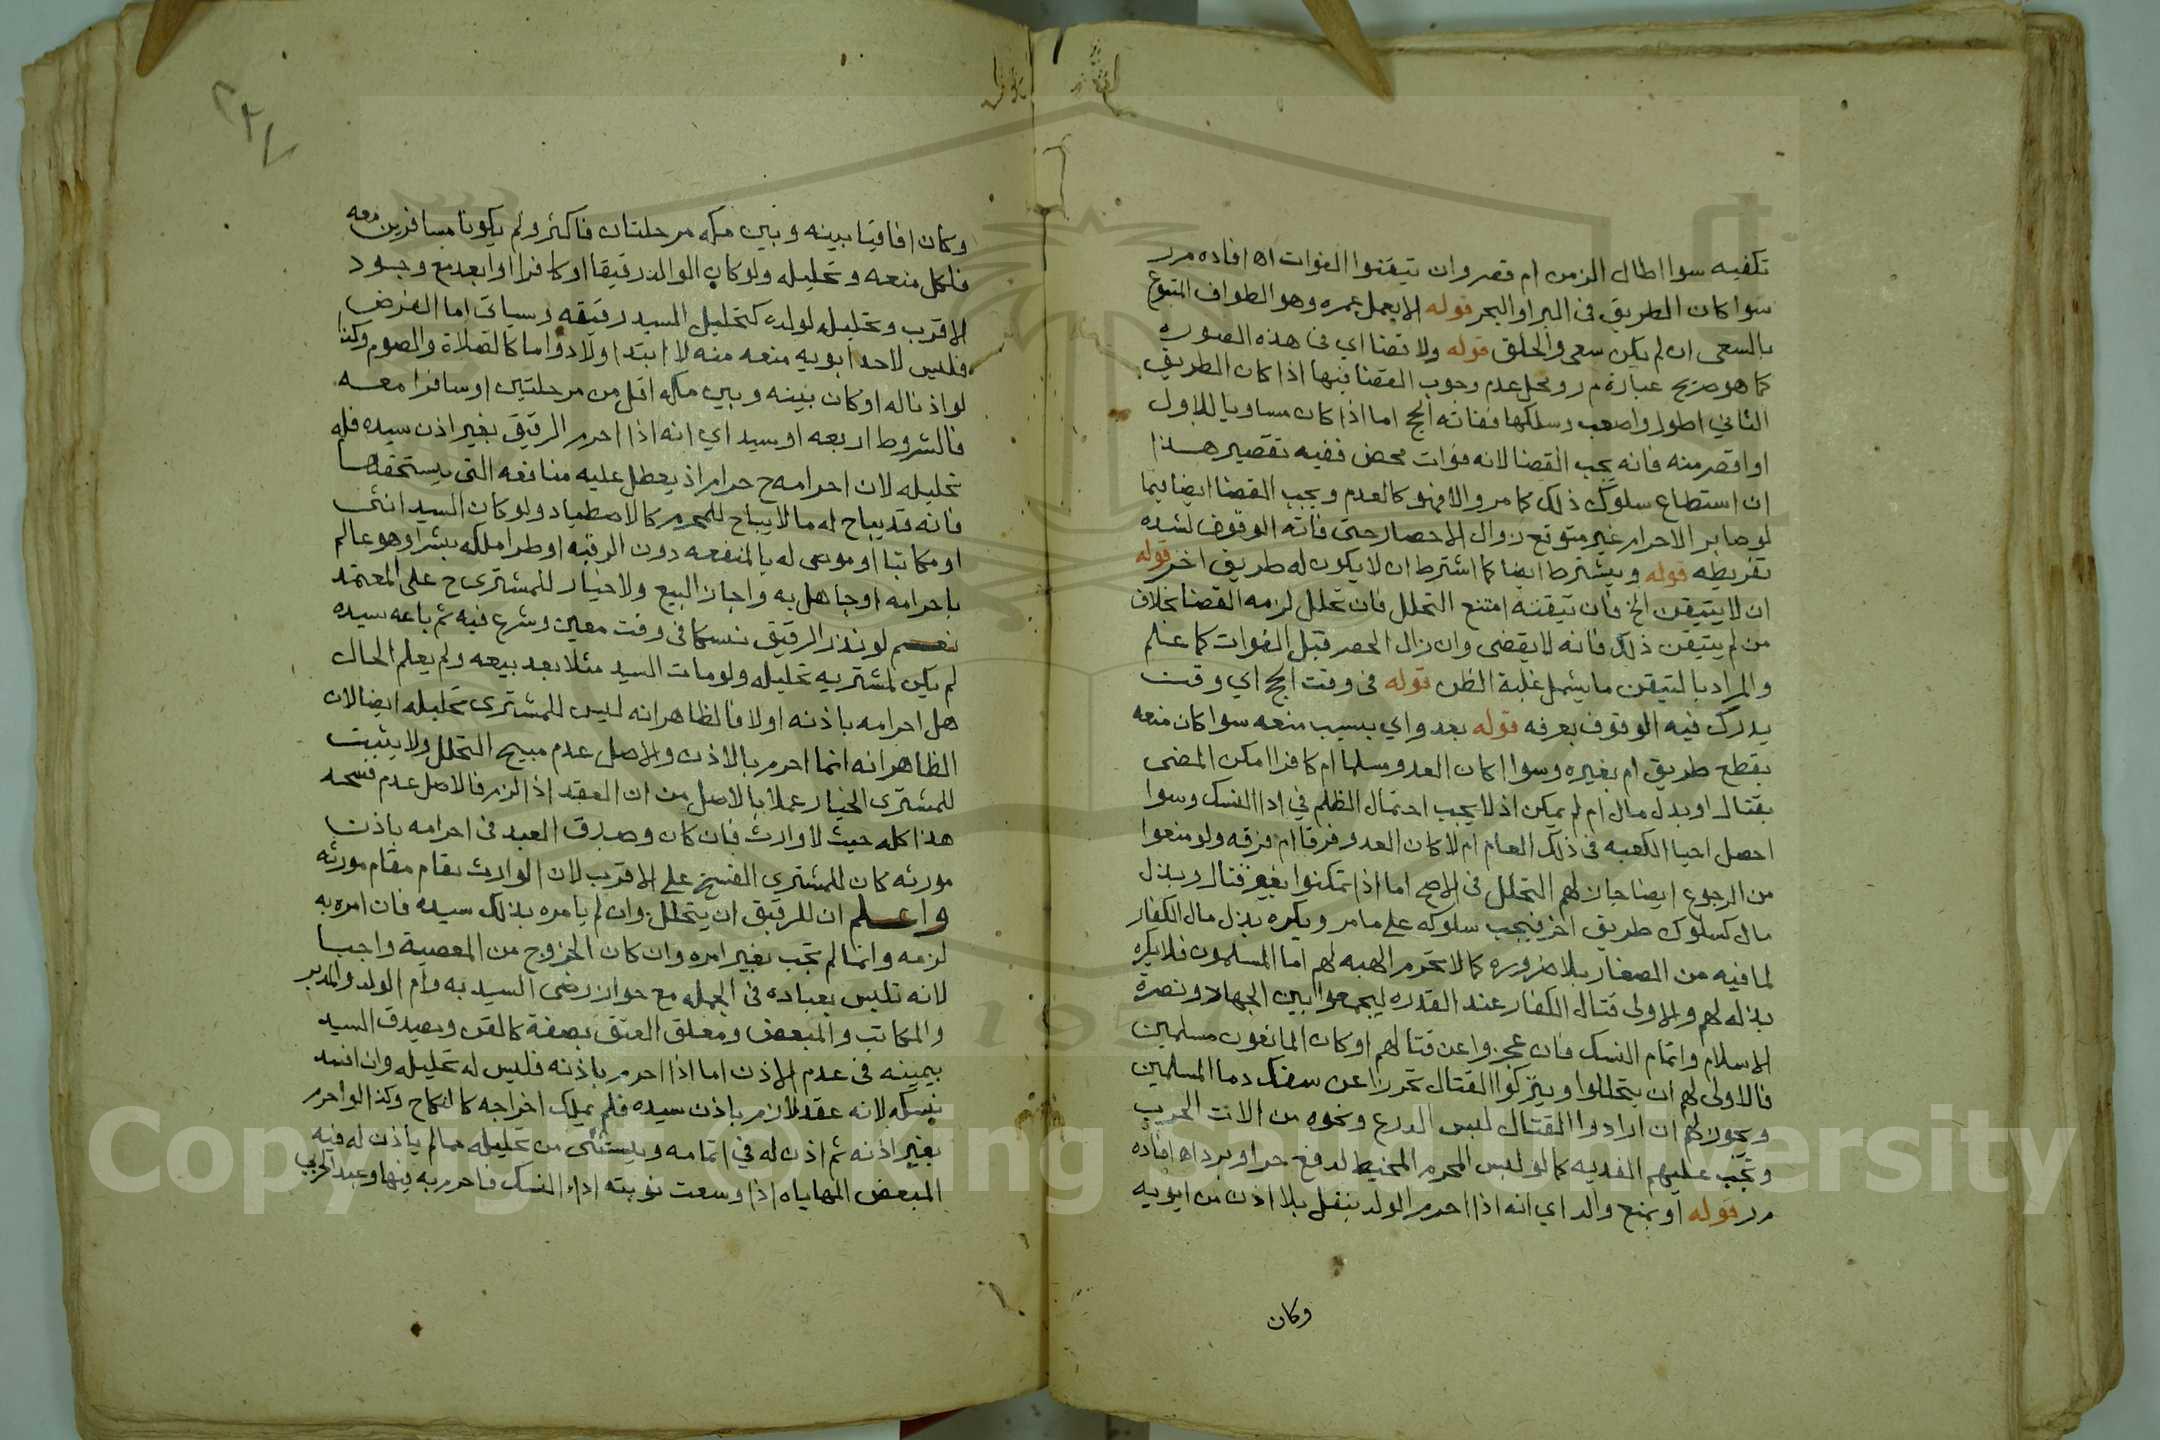 تكفيه سوا اطال الزمن ام قصر وان تيقنوا الفوات اه افاده م ر
سوا كان الطريق فى البر او البحر قوله الا بعمل عمره وهو الطواف المتبوع
بالسعى ان لم يكن سعى والحلق قوله ولا قضا اي فى هذه الصوره
كما هو صريح عبارة م ر ومحل عدم وجوب القضا فيها اذا كان الطريق
الثاني اطول واصعب وسلكها ففاته الحج اما اذا كان مساويا للاول
او اقصر منه فانه يجب القضا لانه فوات محض ففيه تقصير هذا
ان استطاع سلوك ذلك كما مر والا فهو كالعدم ويجب القضا ايضا فيما
لو صابر الاحرام غير متوقع زوال الاحصار حتى فاته الوقوف لشده
تفريطه قوله ويشترط ايضا كما اشترط ان لا يكون له طريق اخر قوله
ان لا يتيقن الخ فان تيقنه امتنع التحلل فان تحلل لزمه القضا بخلاف
من لم يتيقن ذلك فانه لا يقضى وان زال الحصر قبل الفوات كما علم
والمراد بالتيقن ما يشمل غلبة الظن قوله فى وقت الحج اي وقت
يدرك فيه الوقوف بعرفه قوله بعدو اي بسبب منعه سوا كان منعه
بقطع طريق ام بغيره وسوا كان العدو مسلما ام كافرا امكن المضى
بقتال او بذل مال ام لم يمكن اذ لا يجب احتمال الظلم في ادا النسك وسوا
احصل احيا الكعبه فى ذلك العام ام لا كان العدو فرقا ام فرقه ولو منعوا
من الرجوع ايضا جاز لهم التحلل فى الاصح اما اذا تمكنوا بغير قتال وبذل
مال كسلوك طريق اخر فيجب سلوكه على ما مر ويكره بذل مال الكفار
لما فيه من الصغار بلا ضروره كما لا تحرم الهبه لهم اما المسلمون فلا يكره
بذله لهم والاولى قتال الكفار عند القدره ليجمعوا بين الجهاد ونصرة
الاسلام واتمام النسك فان عجزوا عن قتالهم او كان المانعون مسلمين
فالاولى لهم ان يتحللوا ويتركوا القتال تحرزا عن سفك دما المسلمين
ويجوز لهم ان ارادوا القتال لبس الدرع ونحوه من الات الحرب
وتجب عليهم الفديه كما لو لبس المحرم المخيط لدفع حر او برد اه افاده
م ر قوله او بمنع والد اي انه اذا احرم الولد بنفل بلا اذن من ابويه
وكان
وكان افاقيا بينه وبين مكه مرحلتان فاكثر ولم يكونا مسافرين معه
فلكل منعه وتحليله ولو كان الوالد رقيقا او كافرا او ابعد مع وجود
الاقرب وتحليله لولده كتحليل السيد رقيقه وسياتى اما الفرض
فليس لاحد ابويه منعه منه لا ابتدا ولا دواما كالصلاة والصوم وكذا
لو اذنا له او كان بينه وبين مكه اقل من مرحلتين او سافرا معه
فالشروط اربعه او سيد اي انه اذا احرم الرقيق بغير اذن سيده فله
تحليله لان احرامه ح حرام اذ يعطل عليه منافعه التى يستحقها
فانه قد يباح له ما لا يباح للمحرم كالاصطياد ولو كان السيد انثى
او مكاتبا او موصى له بالمنفعه دون الرقبه او طرا ملكه بشرا وهو عالم
باحرامه او جاهل به واجاز البيع ولا خيار للمشترى ح على المعتمد
نعم لو نذر الرقيق نسكا فى وقت معين وشرع فيه ثم باعه سيده
لم يكن لمشتريه تحليله ولو مات السيد مثلا بعد بيعه ولم يعلم الحال
هل احرامه باذنه او لا فالظاهر انه ليس للمشترى تحليله ايضا لان
الظاهر انه انما احرم بالاذن والاصل عدم مبيح التحلل ولا يثبت
للمشترى الخيار عملا بالاصل من ان العقد اذا لزم فالاصل عدم فسخه
هذا كله حيث لا وارث فان كان وصدق العبد فى احرامه باذن
مورثه كان للمشترى الفسخ على الاقرب لان الوارث يقام مقام مورثه
واعلم ان للرقيق ان يتحلل وان لم يامره بذلك سيده فان امره به
لزمه وانما لم تجب بغير امره وان كان الخروج من المعصية واجبا
لانه تلبس بعباده فى الجمله مع جواز رضى السيد به وام الولد والمدبر
والمكاتب والمبعض ومعلق العتق بصفة كالقن ويصدق السيد
بيمينه فى عدم الاذن اما اذا احرم باذنه فليس له تحليله وان افسد
نسكه لانه عقد لازم باذن سيده فلم يملك اخراجه كالنكاح وكذا لو احرم
بغير اذنه ثم اذن له في اتمامه ويستثنى من تحليله مما لم ياذن له فيه
المبعض المهاياه اذا وسعت نوبته اداء النسك فاحرم به فيها وعبد الحربى
Copyright © King Saud University